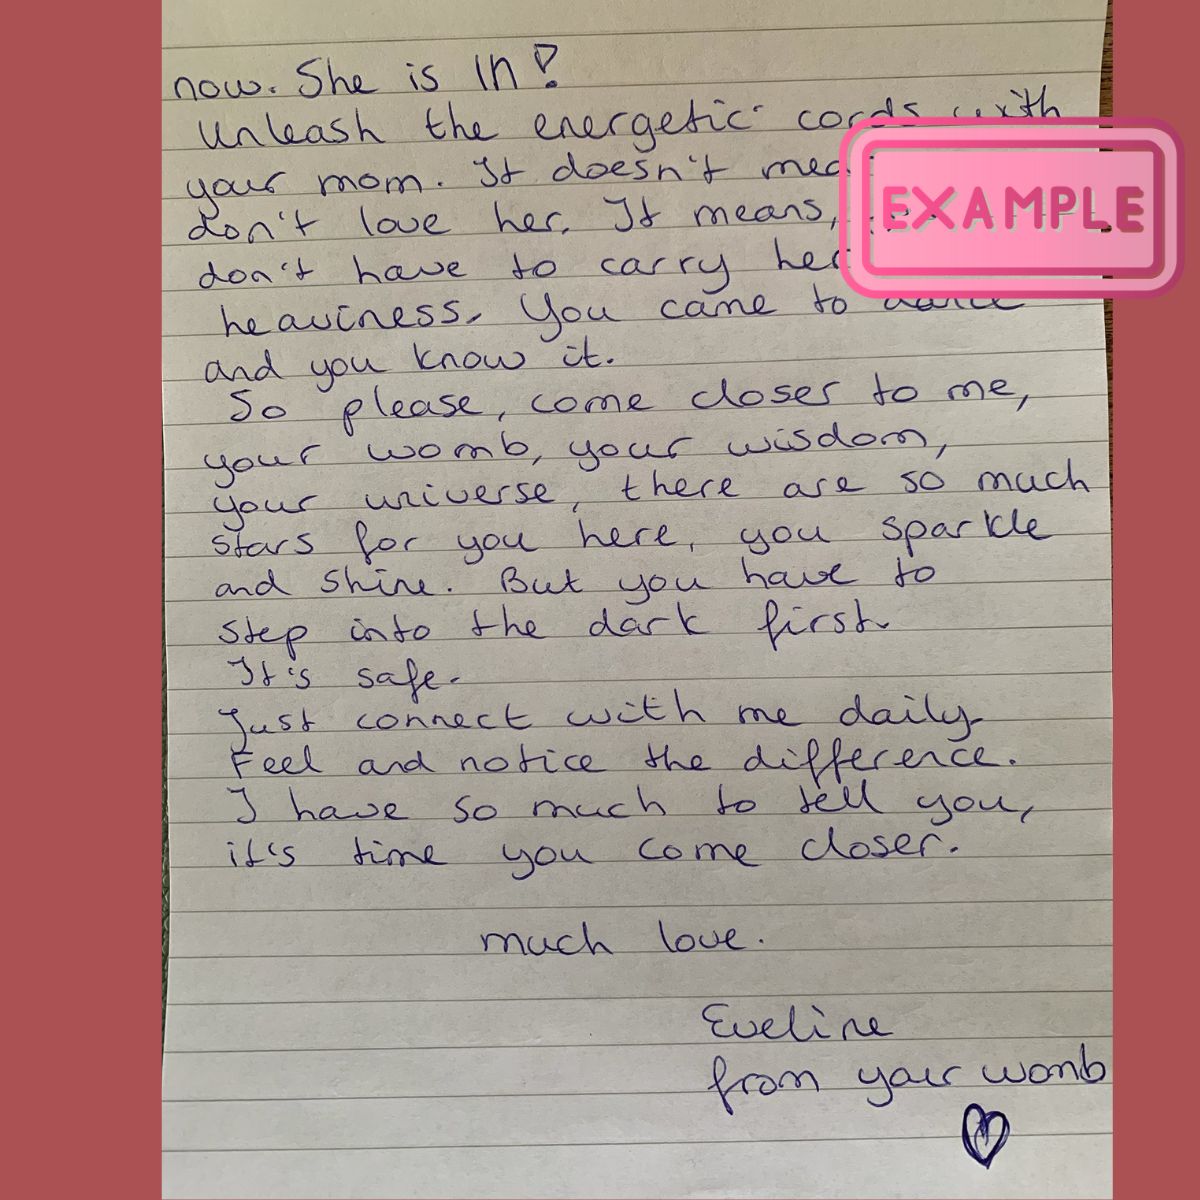 now. She is IN!
Unleash the energetic cords with
your mom. It doesn't
don't love her. It means,
don't have to carry her
heaviness. You came to dance
and you know it.
So please, come closer to me,
your womb, your wisdom,
your universe, there are so much
stars for you here, you sparkle
and shine. But you have to
step into the dark first.
It's safe.
Just connect with me daily.
Feel and notice the difference.
I have so much to tell you,
it's time you come closer.
much love.
Eveline
from your womb
EXAMPLE